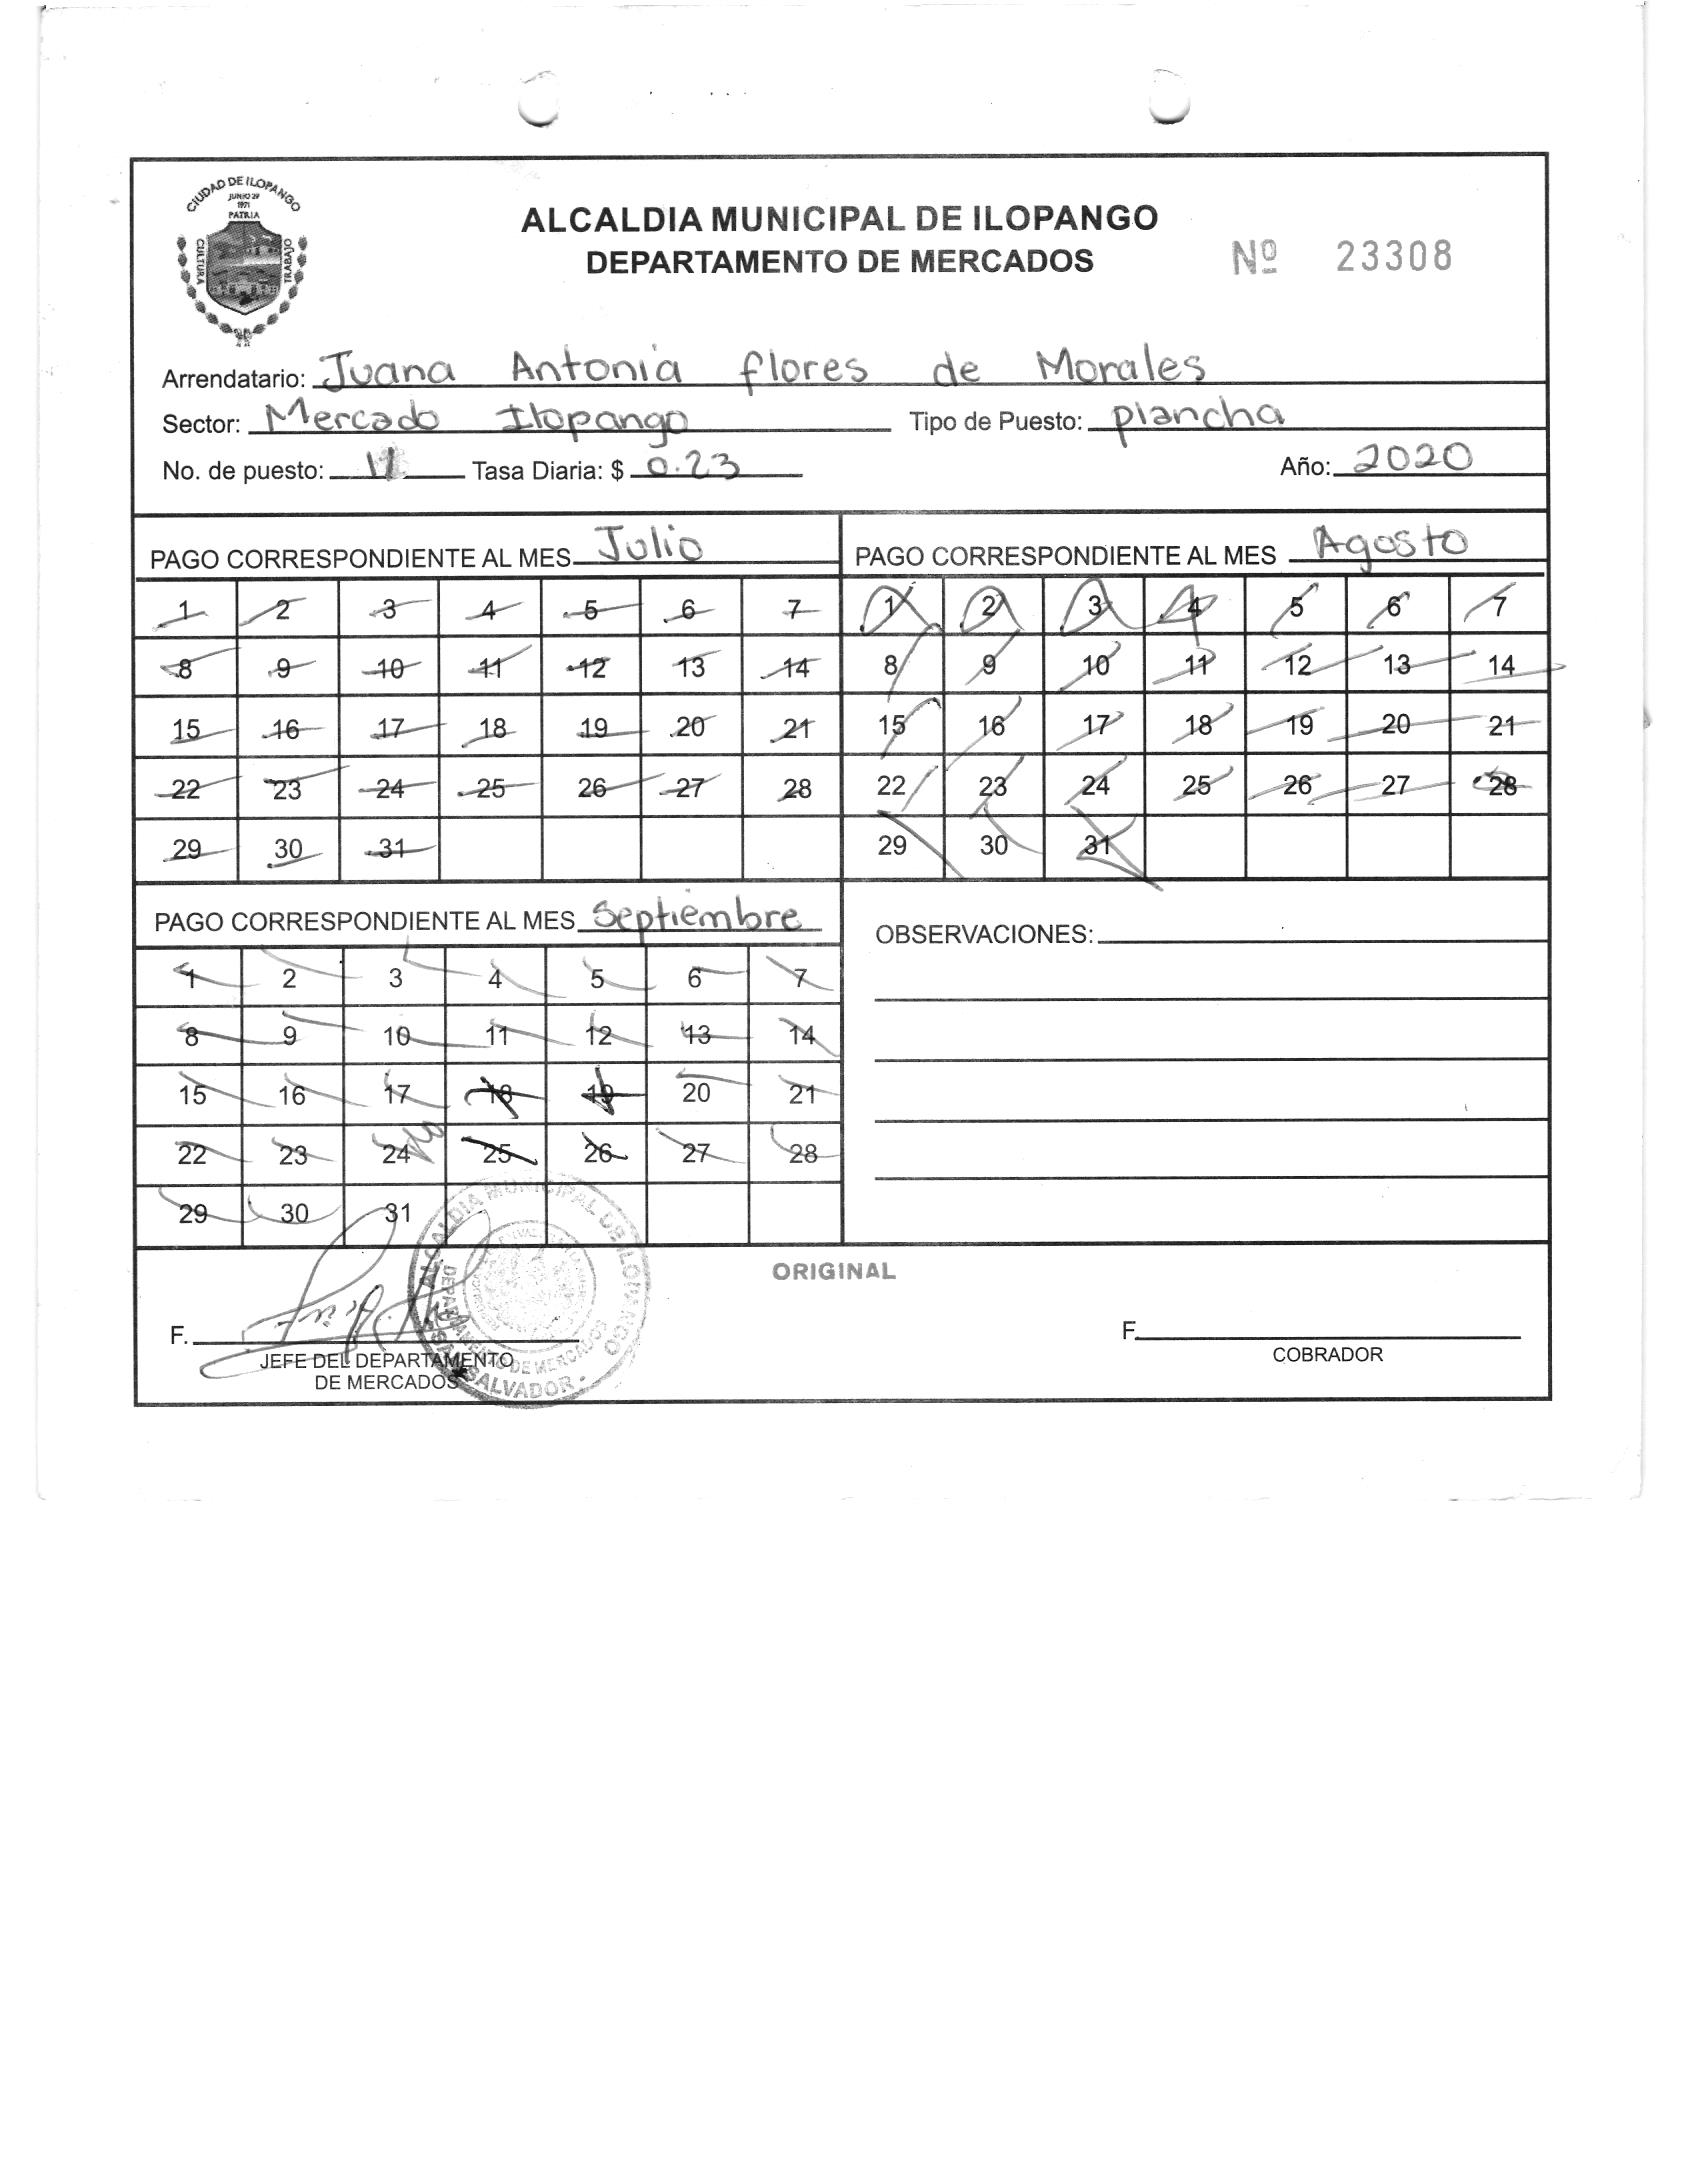 CIUDAD DE ILOPANGO
JUNIO 29
1971
PATRIA
CULTURA
TRABAJO
ALCALDIA MUNICIPAL DE ILOPANGO
DEPARTAMENTO DE MERCADOS
Nº 23308
Arrendatario: Juana Antonia flores de Morales
Sector: Mercado Ilopango Tipo de Puesto: plancha
No. de puesto: 11 Tasa Diaria: $ 0.23 Año: 2020
PAGO CORRESPONDIENTE AL MES Julio
1 2 3 4 5 6 7
8 9 10 11 12 13 14
15 16 17 18 19 20 21
22 23 24 25 26 27 28
29 30 31
PAGO CORRESPONDIENTE AL MES Agosto
1 2 3 4 5 6 7
8 9 10 11 12 13 14
15 16 17 18 19 20 21
22 23 24 25 26 27 28
29 30 31
PAGO CORRESPONDIENTE AL MES Septiembre
1 2 3 4 5 6 7
8 9 10 11 12 13 14
15 16 17 18 19 20 21
22 23 24 25 26 27 28
29 30 31
OBSERVACIONES:
ALCALDIA MUNICIPAL DE ILOPANGO
DEPARTAMENTO DE MERCADOS
SAN SALVADOR
ORIGINAL
F.
JEFE DEL DEPARTAMENTO
DE MERCADOS
F.
COBRADOR